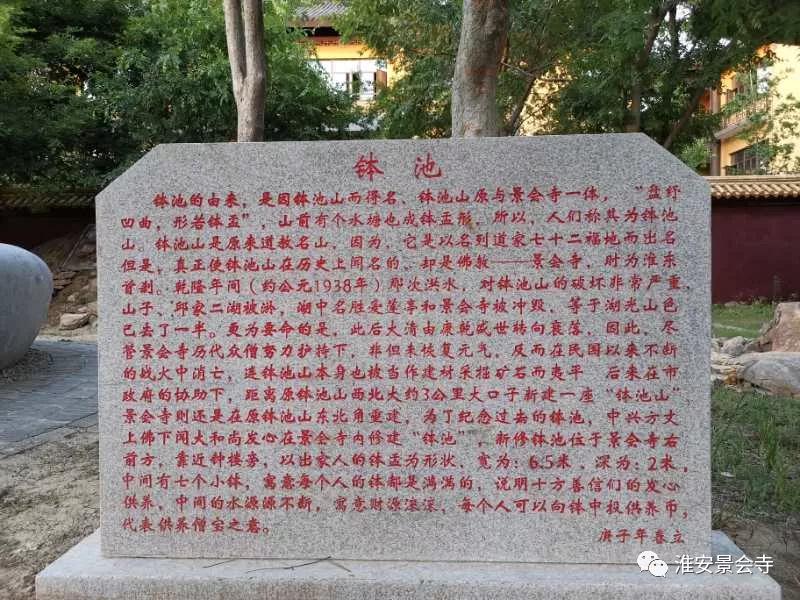 钵池
钵池的由来，是因钵池山而得名、钵池山原与景会寺一体，“盘纡
凹曲，形若钵盂”，山前有个水塘也成钵盂形，所以，人们称其为钵池
山。钵池山是原来道教名山，因为，它是以名列道家七十二福地而出名
但是，真正使钵池山在历史上闻名的、却是佛教——景会寺，时为淮东
首刹。乾隆年间（约公元1938年）那次洪水，对钵池山的破坏非常严重，
山子、邱家二湖被淤，湖中名胜爱莲亭和景会寺被冲毁，等于湖光山色
已去了一半。更为要命的是，此后大清由康乾盛世转向衰落，因此，尽
管景会寺历代众僧努力护持下，非但未恢复元气，反而在民国以来不断
的战火中消亡，连钵池山本身也被当作建材采掘矿石而夷平 后来在市
政府的协助下，距离原钵池山西北大约3公里大口子新建一座“钵池山”
景会寺则还是在原钵池山东北角重建，为了纪念过去的钵池，中兴方丈
上佛下闻大和尚发心在景会寺内修建“钵池”，新修钵池位于景会寺右
前方，靠近钟楼旁，以出家人的钵盂为形状，宽为：6.5米，深为：2米，
中间有七个小钵，寓意每个人的钵都是满满的，说明十方善信们的发心
供养，中间的水源源不断，寓意财源滚滚，每个人可以向钵中投供养币，
代表供养僧宝之意。
庚子年春立
淮安景会寺